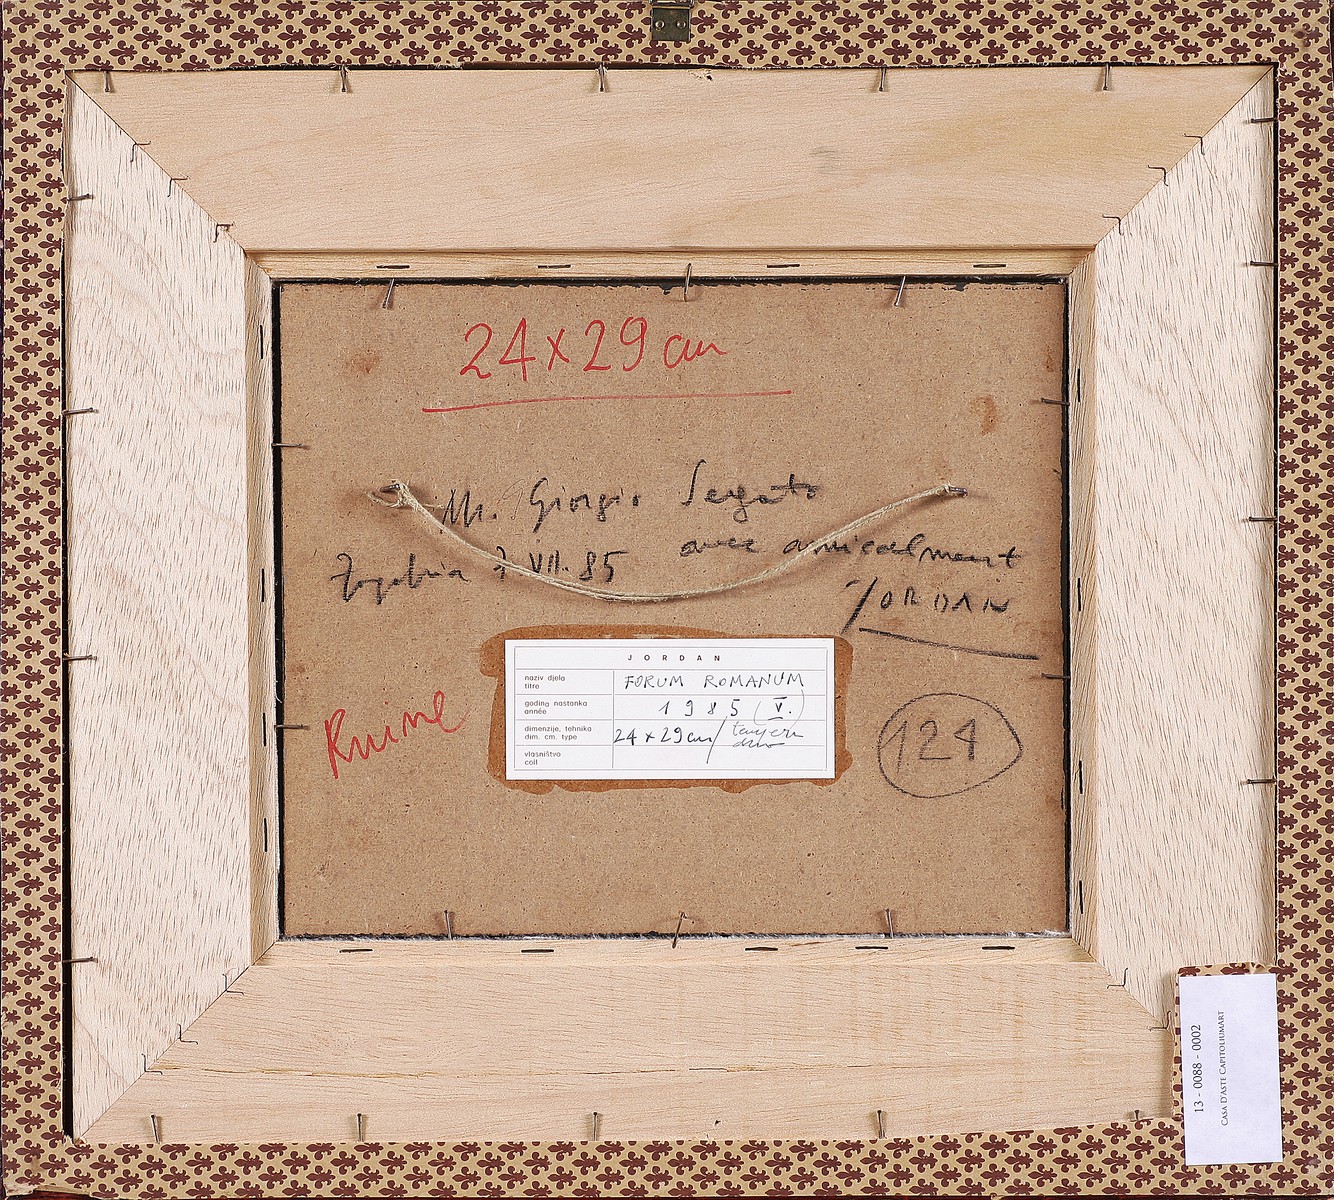 24x29 cm
Mr. Giorgio Segato
Zagabria 7 VII. 85 avec amicalment
JORDAN
JORDAN
naziv djela
titre
FORUM ROMANUM
godina nastanka
année
1985 (V.)
dimenzije, tehnika
dim. cm. type
24x29cm/
vlasništvo
coll
Ruine
124
13 - 0088 - 0002
CASA D'ASTE CAPITOLIUMART